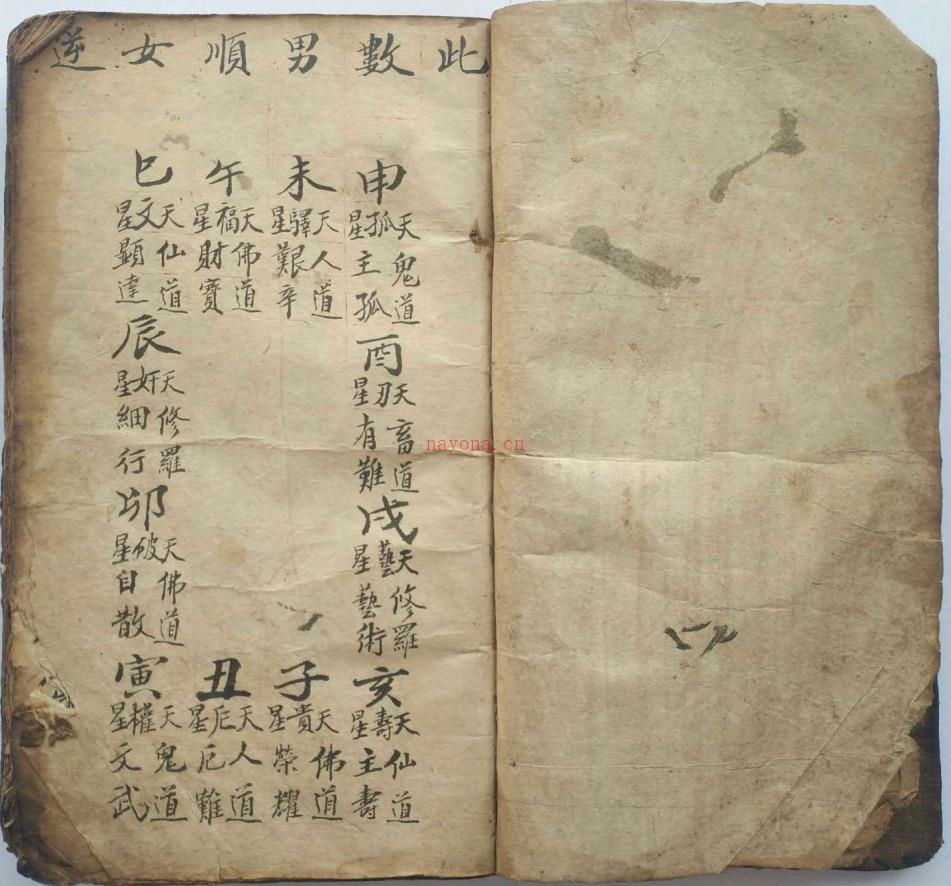 此數男順女逆
申
天孤星
鬼道
主孤
酉
天刃星
畜道
有難
戌
天藝星
修羅
藝術
亥
天壽星
仙道
主壽
未
天驛星
人道
艱辛
子
天貴星
佛道
榮耀
午
天福星
佛道
財寶
丑
天厄星
人道
厄難
巳
天文星
仙道
顯達
辰
天奸星
修羅
細行
卯
天破星
佛道
自散
寅
天權星
鬼道
文武
nayona.cn